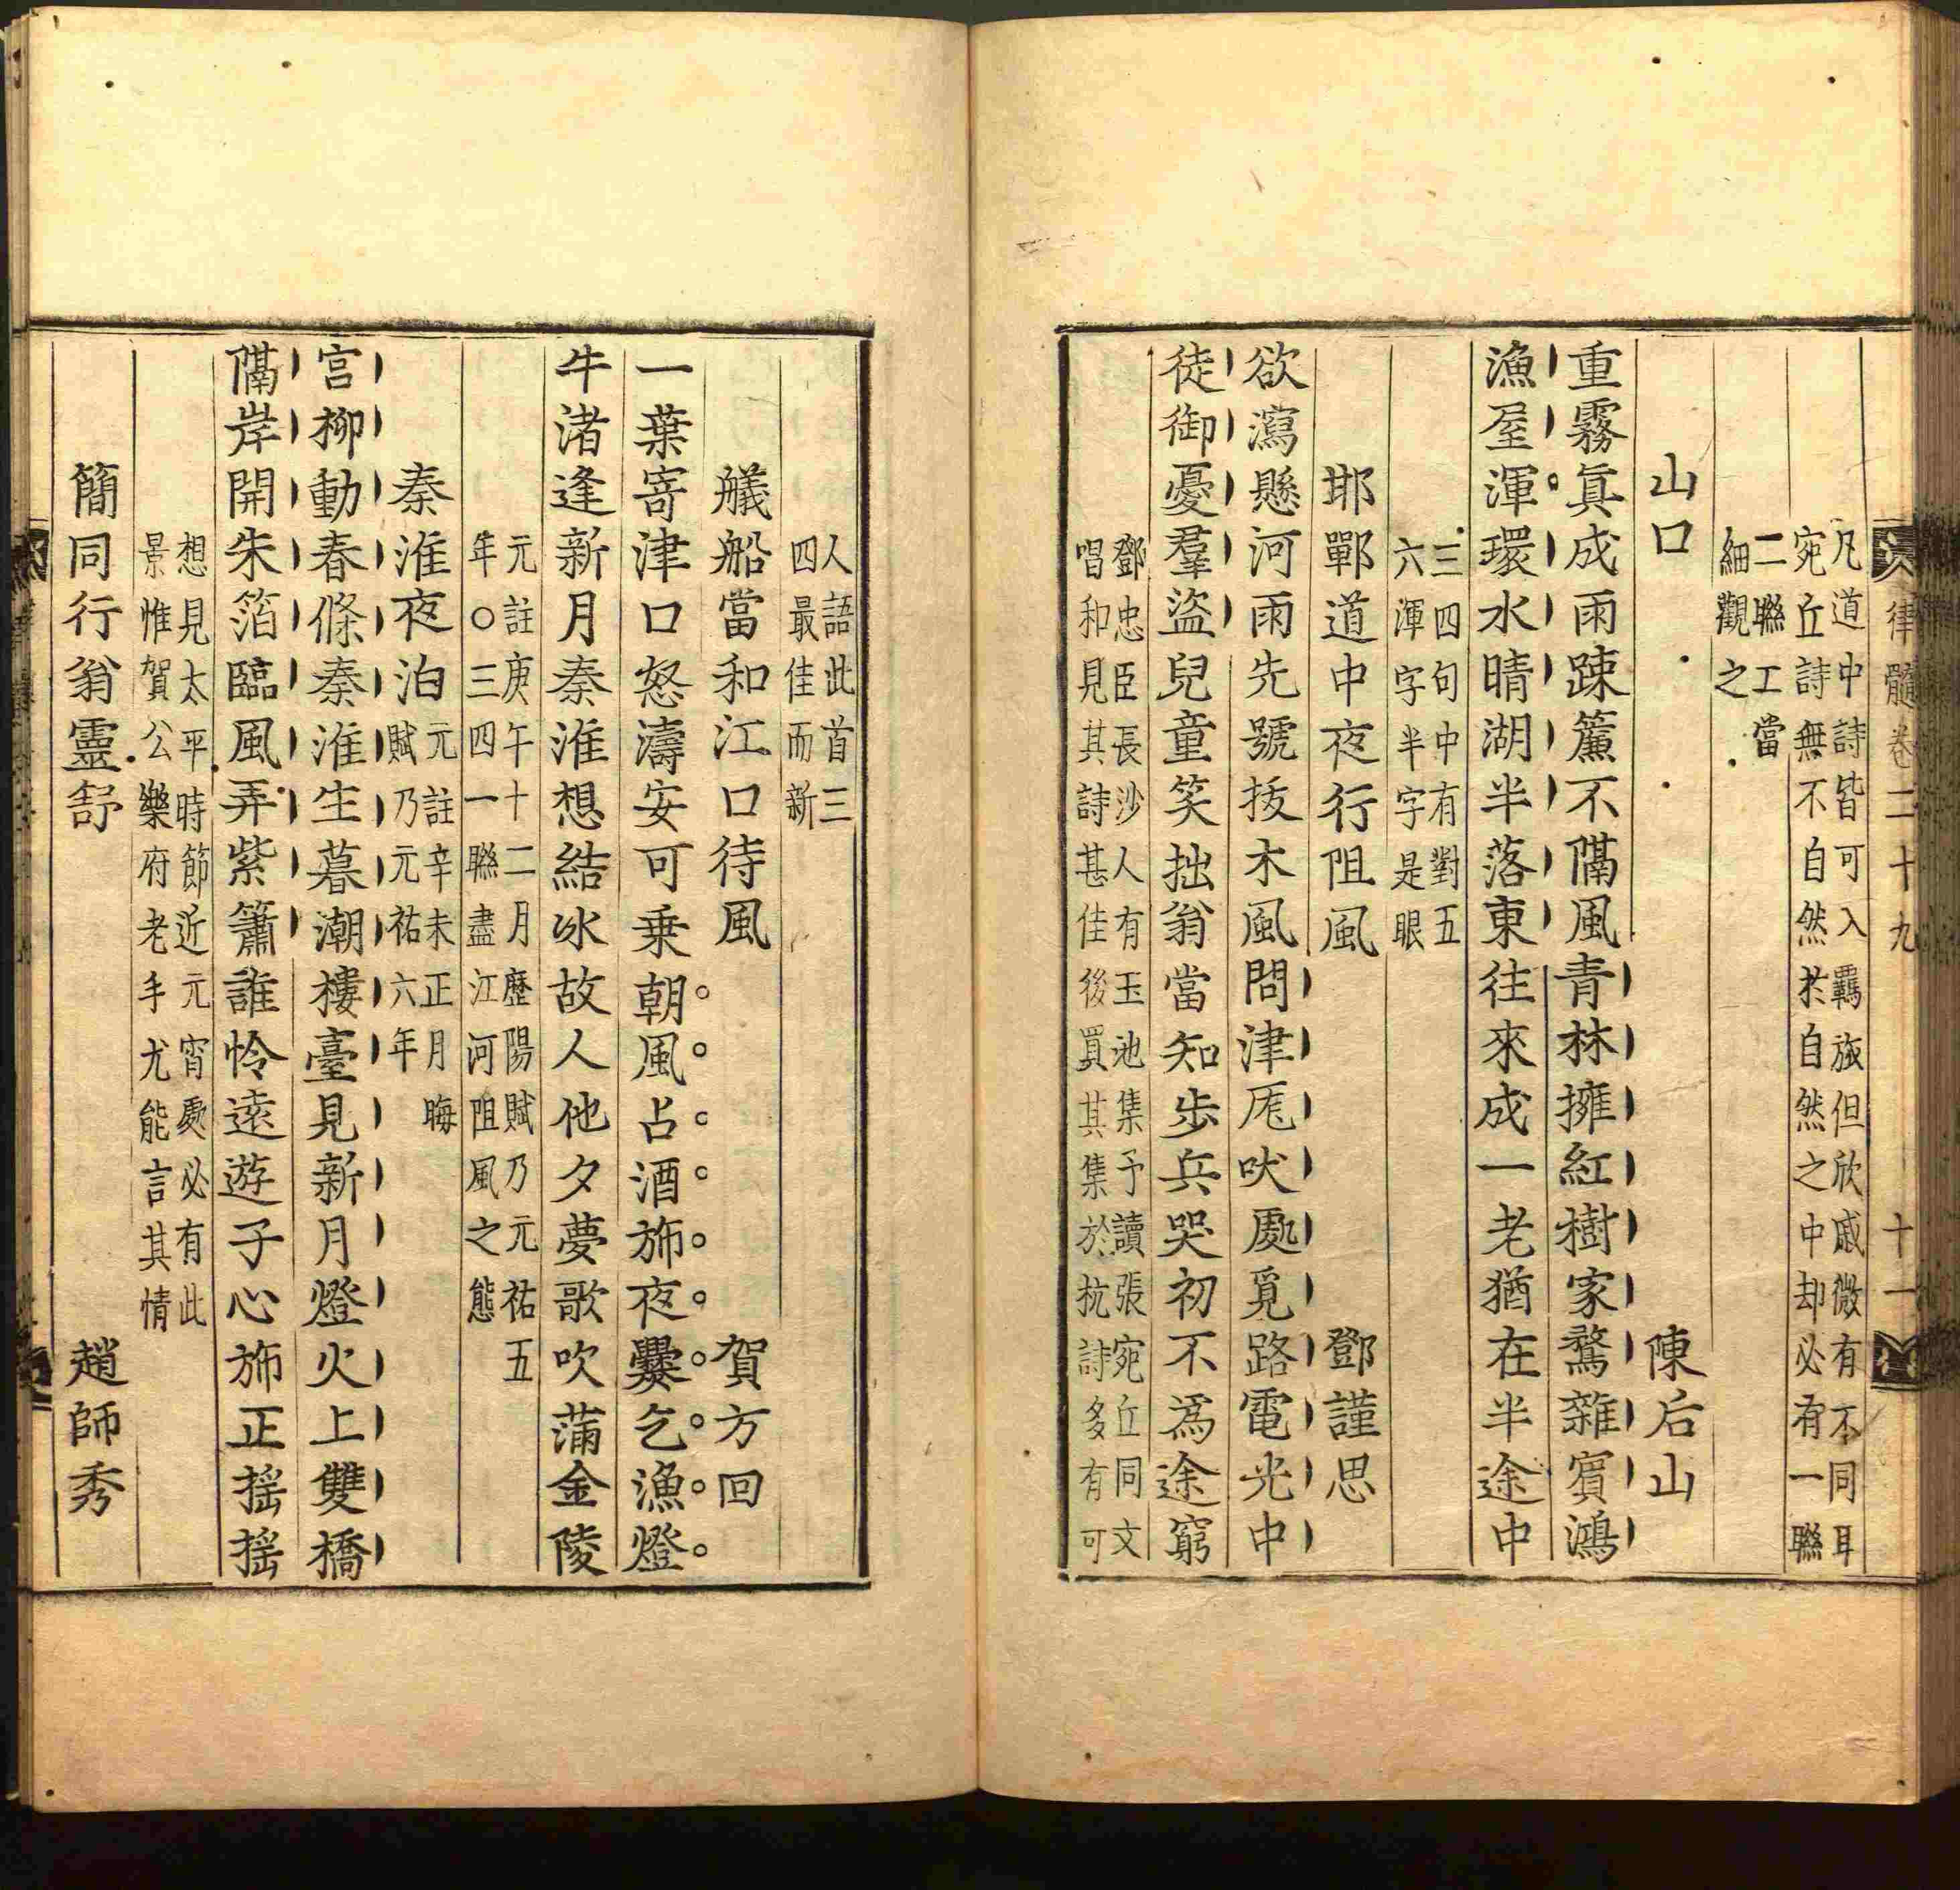 律髓卷二十九 十一
凡道中詩皆可入羈旅但欣戚微有不同耳
宛丘詩無不自然於自然之中却必有一聯
二聯工當
細觀之
山口 陳后山
重霧眞成雨踈簾不隔風青林擁紅樹家鶩雜賓鴻
漁屋渾環水晴湖半落東往來成一老猶在半途中
三四句中有對五
六渾字半字是眼
邯鄲道中夜行阻風 鄧謹思
欲瀉懸河雨先號拔木風問津厖吠處覓路電光中
徒御憂羣盜兒童笑拙翁當知步兵哭初不爲途窮
鄧忠臣長沙人有玉池集予讀張宛丘同文
唱和見其詩甚佳後買其集於抗詩多有可
人語此首三
四最佳而新
艤船當和江口待風 賀方回
一葉寄津口怒濤安可乗朝風占酒斾夜爨乞漁燈
牛渚逢新月秦淮想結冰故人他夕夢歌吹蒲金陵
元註庚午十二月歷陽賦乃元祐五
年○三四一聯盡江河阻風之態
秦淮夜泊 元註辛未正月晦
賦乃元祐六年
宮柳動春條秦淮生暮潮樓臺見新月燈火上雙橋
隔岸開朱箔臨風弄紫簫誰怜遠遊子心斾正搖搖
想見太平時節近元宵處必有此
景惟賀公樂府老手尤能言其情
簡同行翁靈舒 趙師秀